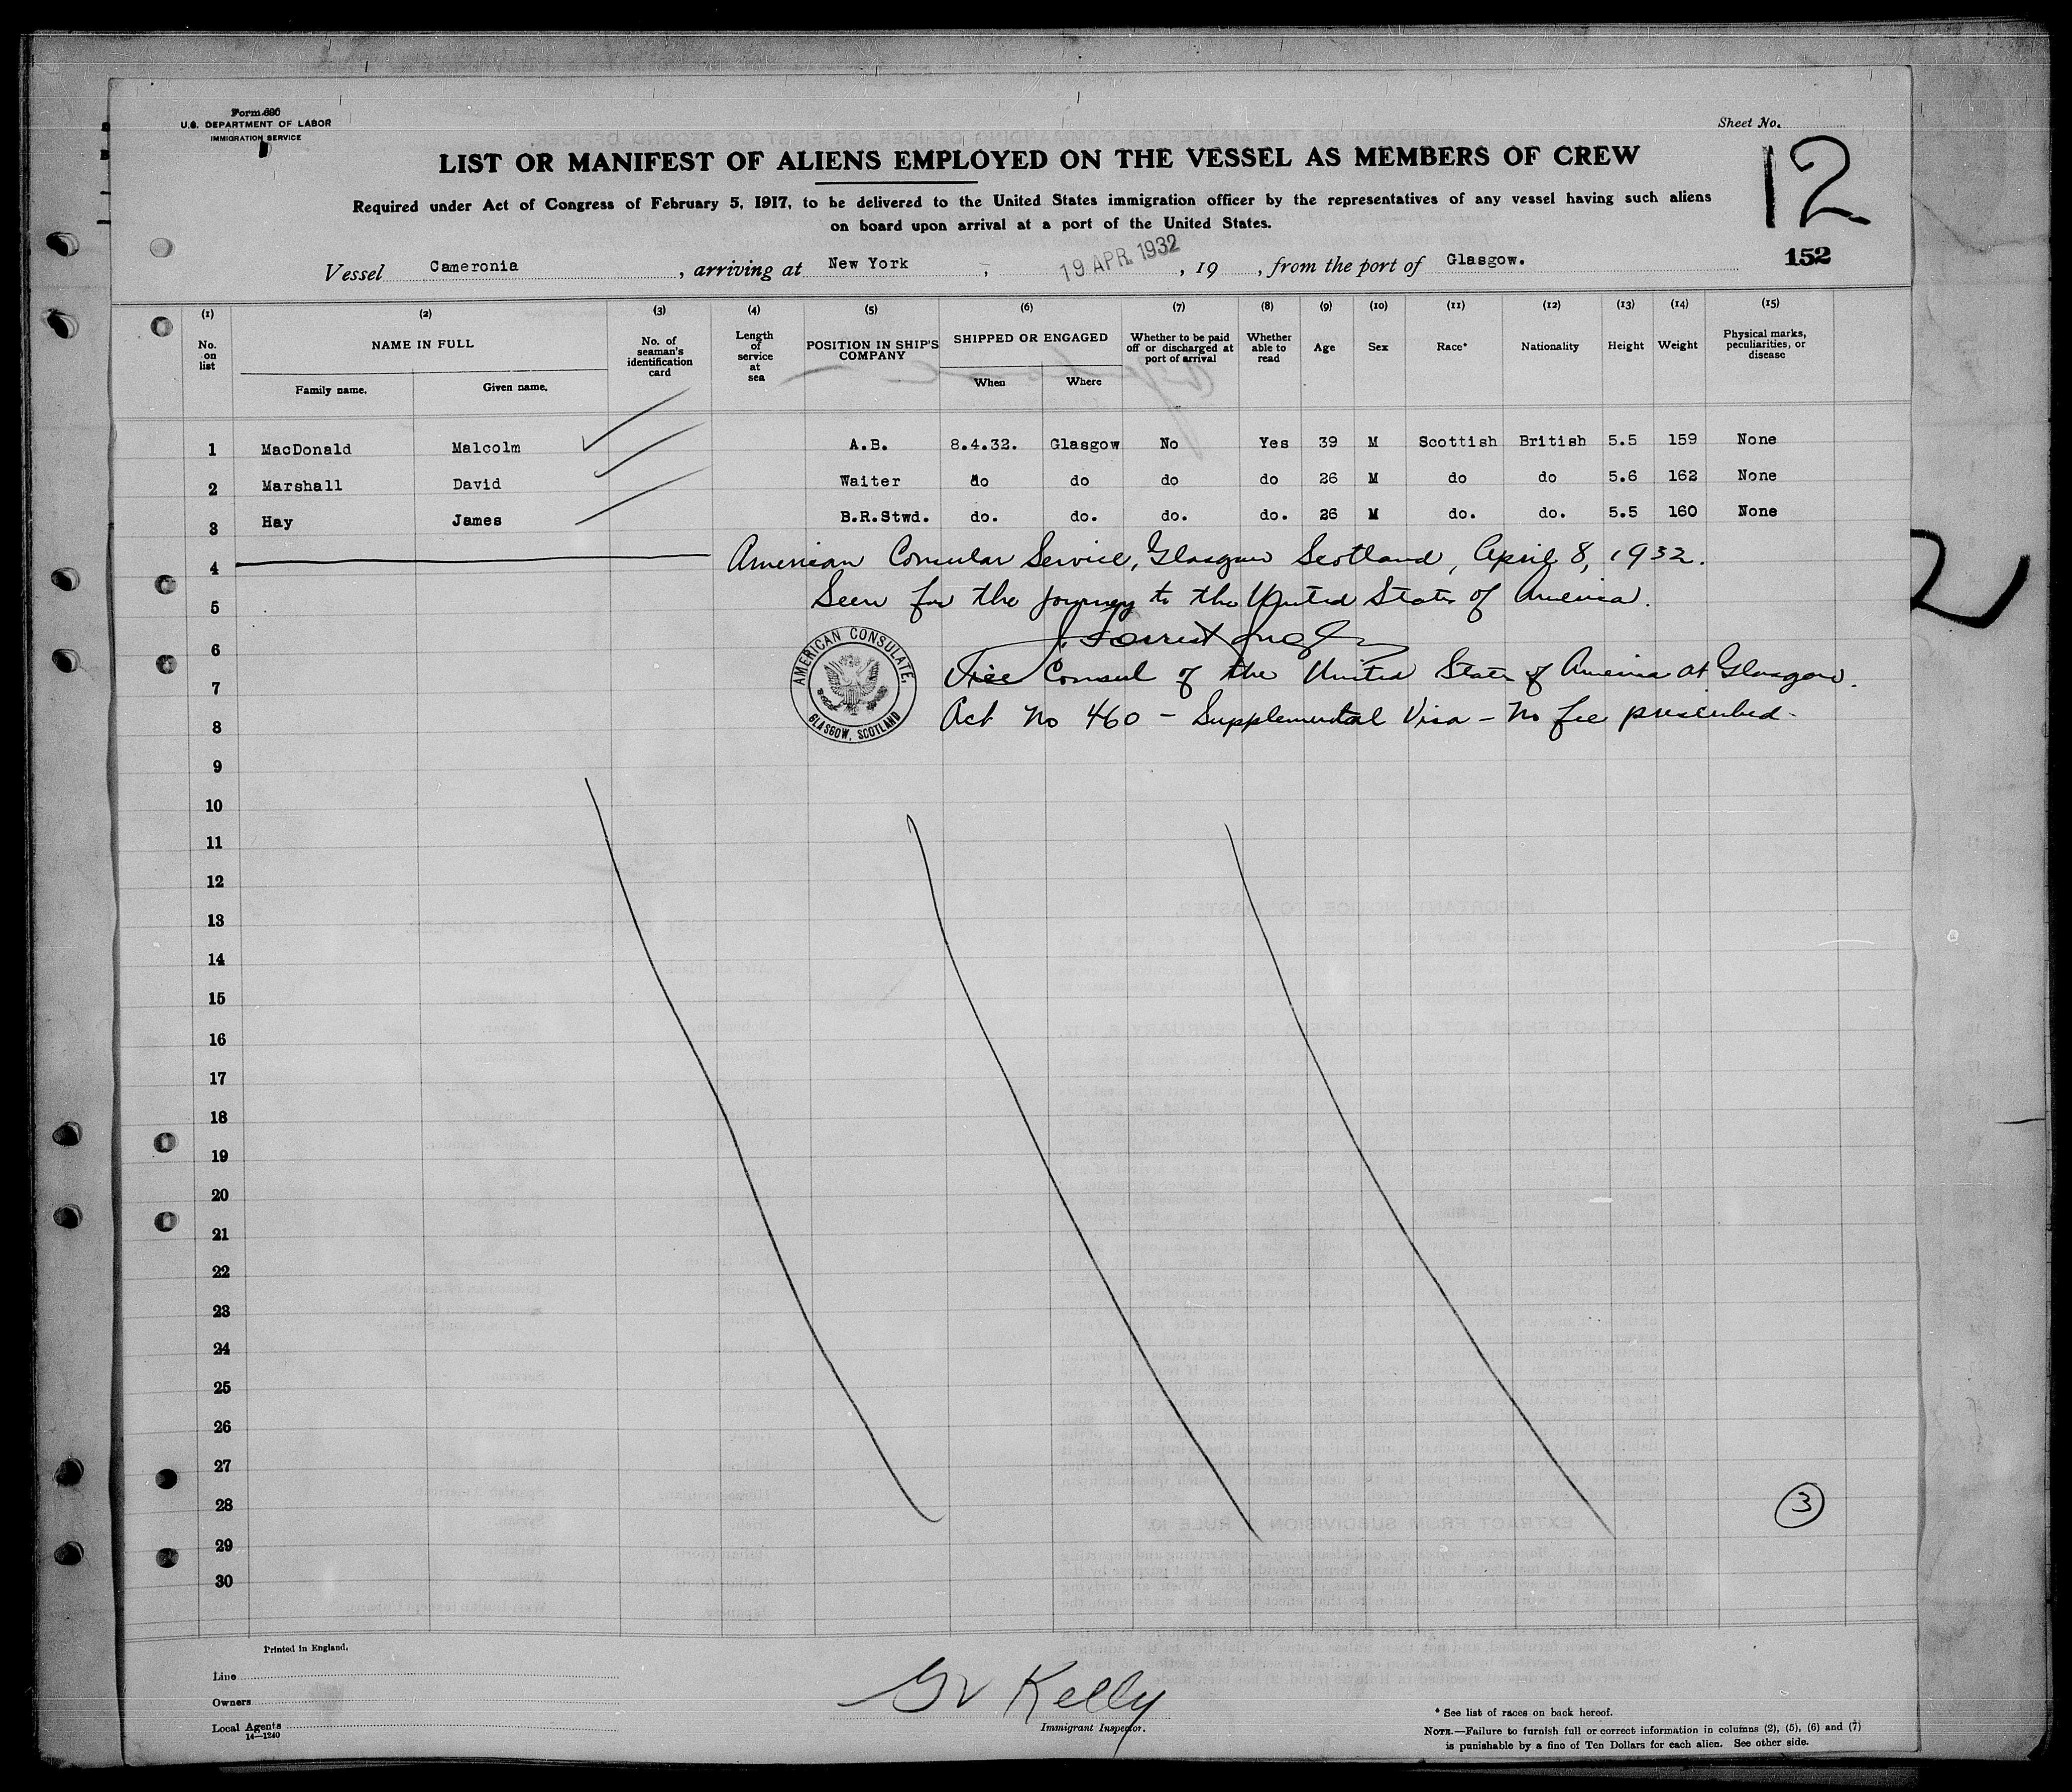 Form 686
U.S. DEPARTMENT OF LABOR
IMMIGRATION SERVICE
Sheet No.
12
LIST OR MANIFEST OF ALIENS EMPLOYED ON THE VESSEL AS MEMBERS OF CREW
Required under Act of Congress of February 5, 1917, to be delivered to the United States immigration officer by the representatives of any vessel having such aliens
on board upon arrival at a port of the United States.
152
Vessel Cameronia, arriving at New York, 19 APR. 1932, 19 , from the port of Glasgow.
(1) (2) (3) (4) (5) (6) (7) (8) (9) (10) (11) (12) (13) (14) (15)
No. on list NAME IN FULL Family name. Given name. No. of seaman's identification card Length of service at sea POSITION IN SHIP'S COMPANY SHIPPED OR ENGAGED When Where Whether to be paid off or discharged at port of arrival Whether able to read Age Sex Race* Nationality Height Weight Physical marks, peculiarities, or disease
1 MacDonald Malcolm A.B. 8.4.32. Glasgow No Yes 39 M Scottish British 5.5 159 None
2 Marshall David Waiter do do do do 26 M do do 5.6 162 None
3 Hay James B.R.Stwd. do. do. do. do. 26 M do. do. 5.5 160 None
4 American Consular Service, Glasgow Scotland, April 8, 1932.
5 Seen for the journey to the United States of America.
6
AMERICAN CONSULATE, GLASGOW, SCOTLAND
7 Vice Consul of the United States of America at Glasgow.
8 Act No 460 - Supplemental Visa - No fee prescribed-
9
10
11
12
13
14
15
16
17
18
19
20
21
22
23
24
25
26
27
28
3
29
30
Printed in England.
Line
Owners
Local Agents
14—1240
GV Kelly
Immigrant Inspector.
* See list of races on back hereof.
NOTE.—Failure to furnish full or correct information in columns (2), (5), (6) and (7)
is punishable by a fine of Ten Dollars for each alien. See other side.